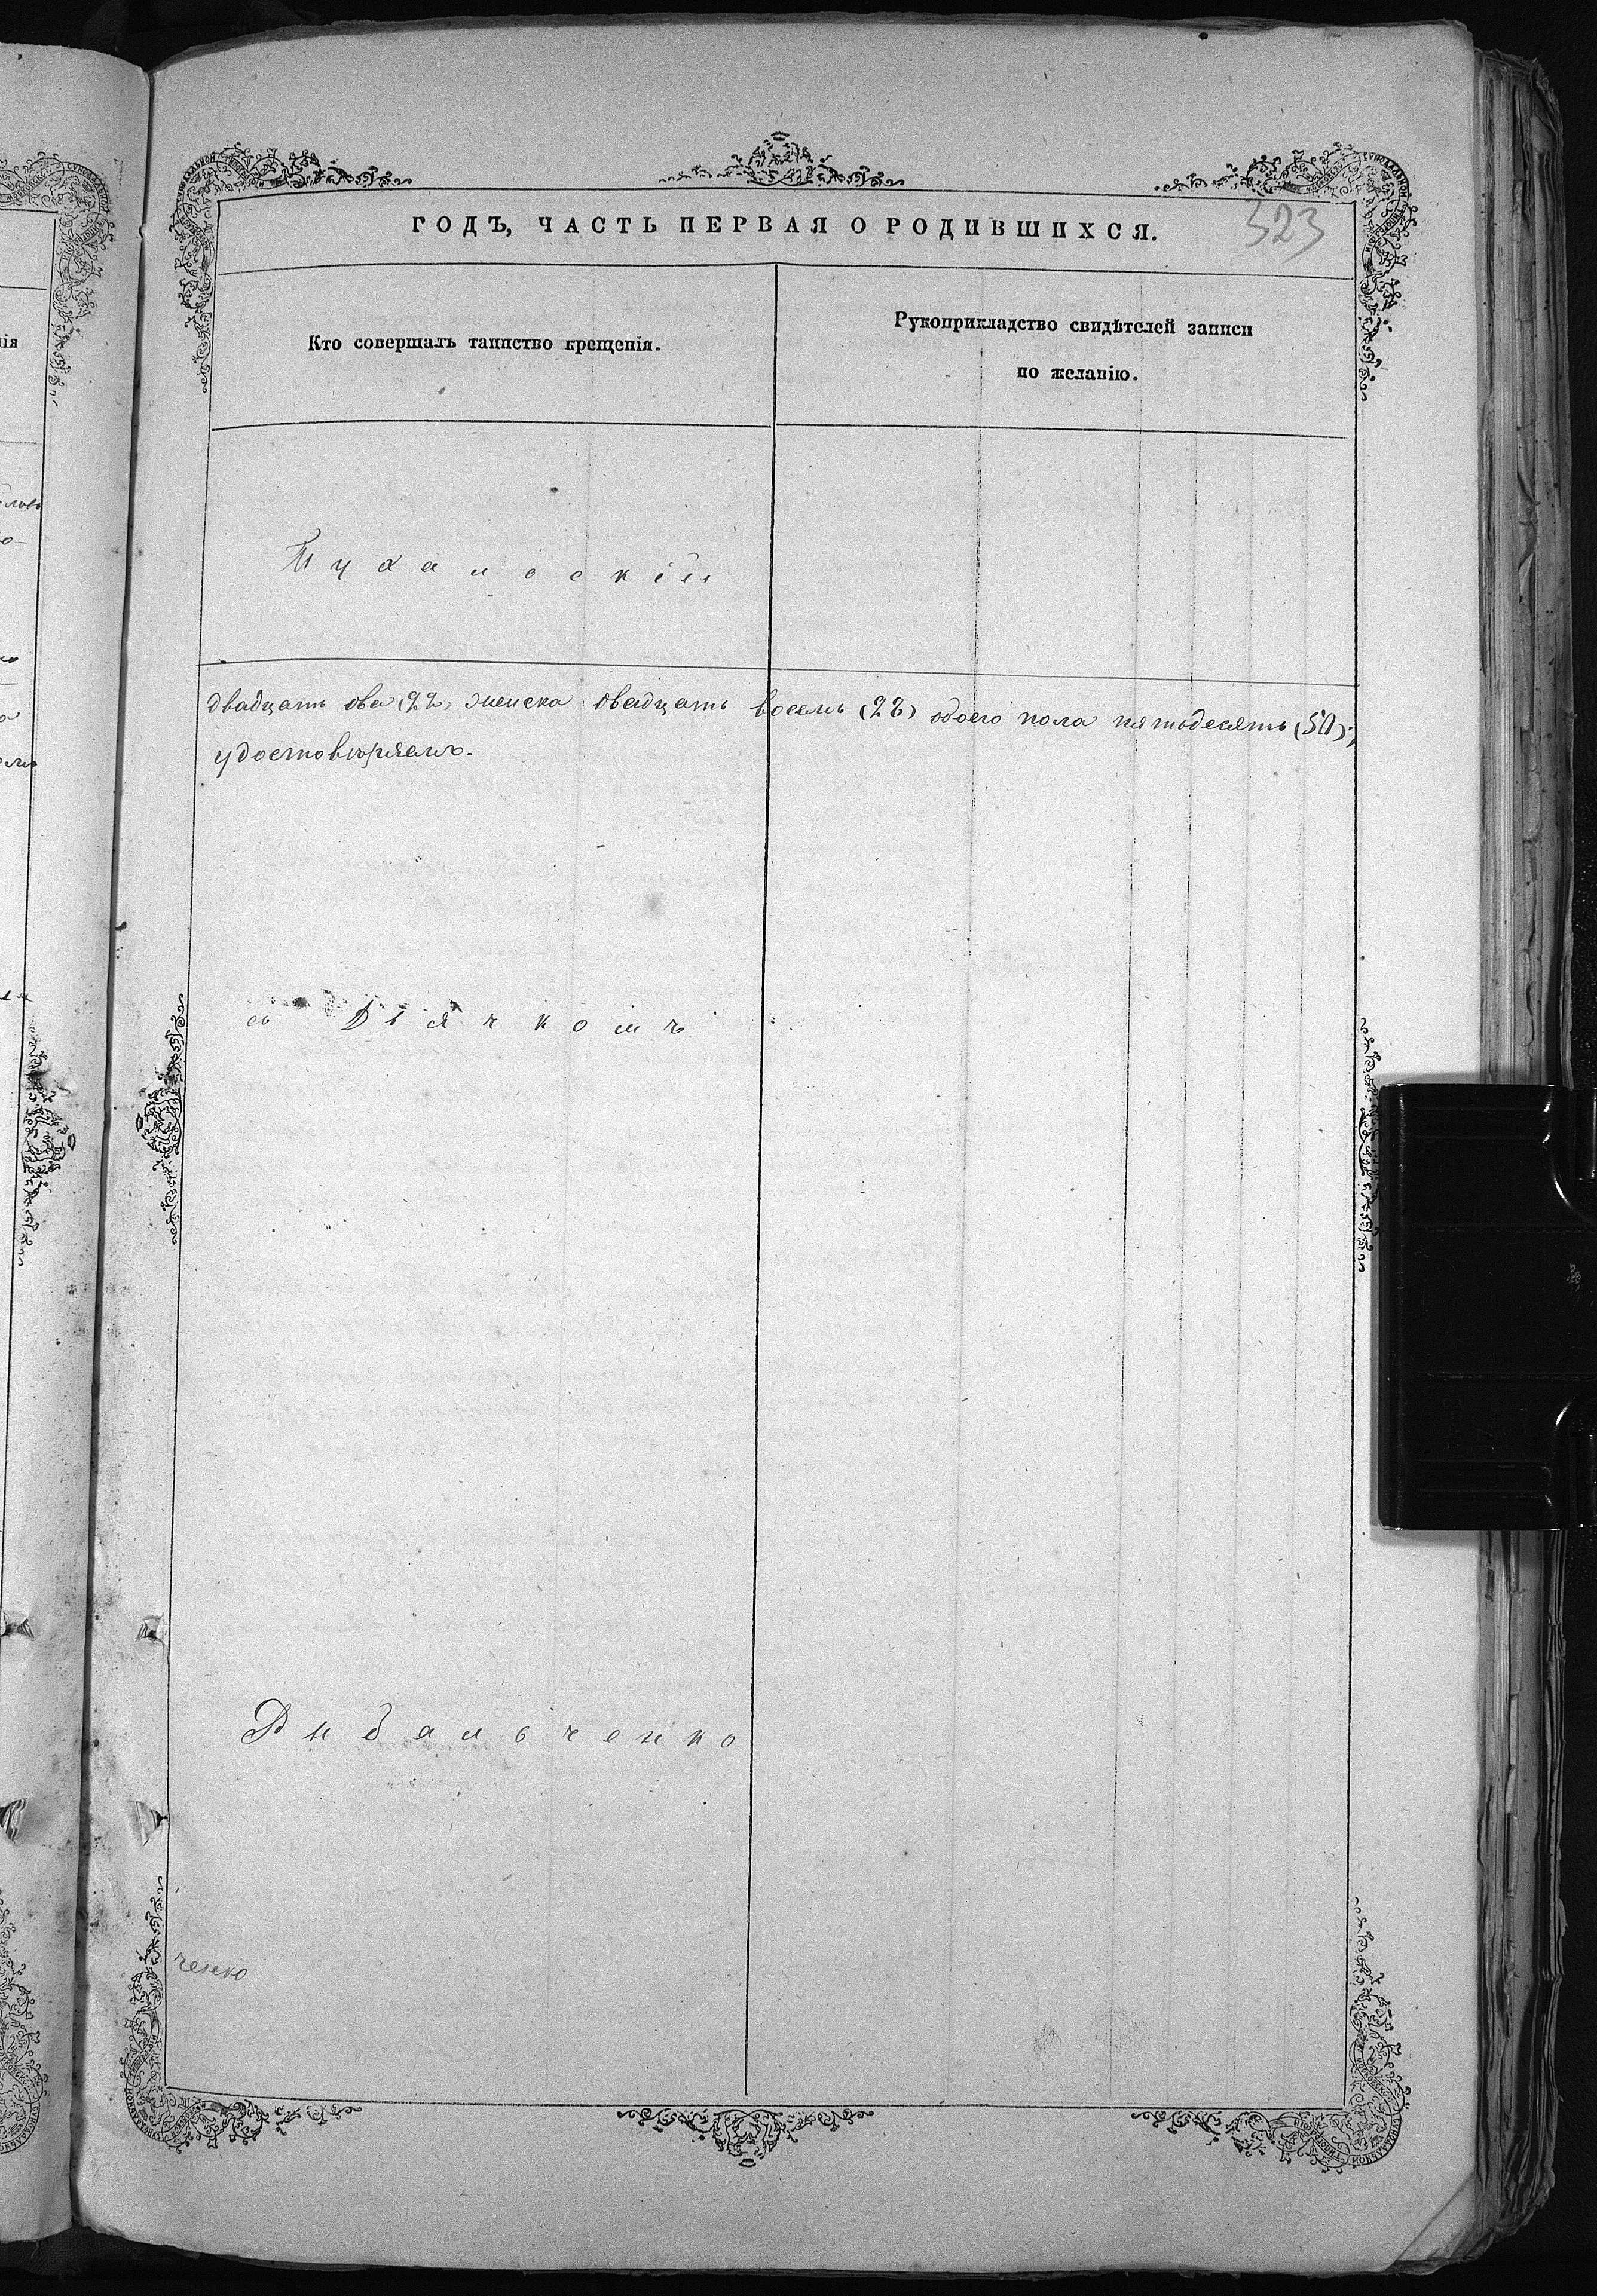 ГОДЪ, ЧАСТЬ ПЕРВАЯ О РОДИВШИХСЯ.
323
Кто совершалъ таинство крещенія.
Рукоприкладство свидѣтелей записи
по желанію.
двадцать два (22) женска двадцать восемь (28) обоего пола пятьдесять (50);
удостовѣряемъ.
съ Дьячкомъ
Дыбальченко
ченко